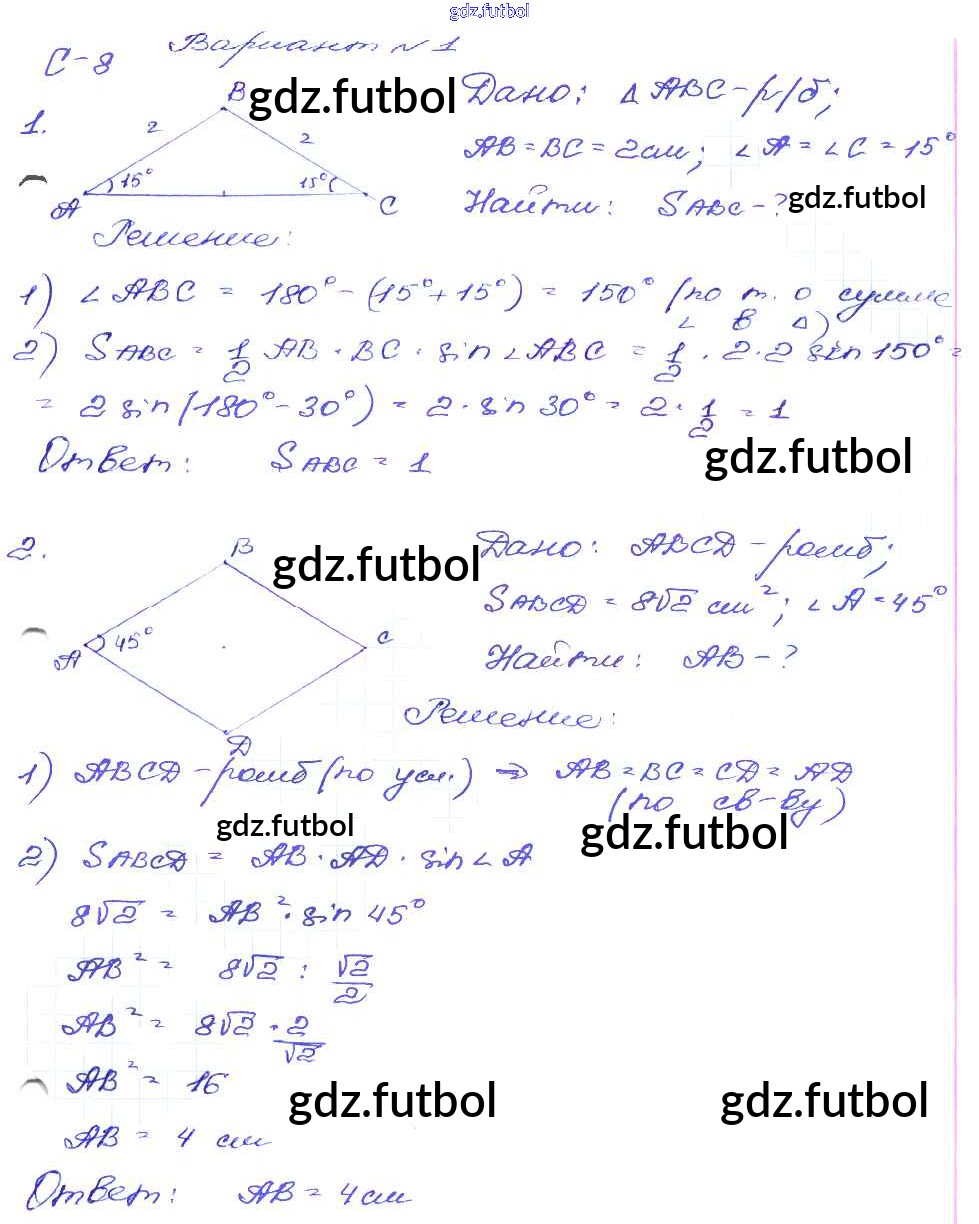 gdz.futbol
С-8 Вариант №1
1.
B
2
2
15°
15°
A
C
gdz.futbol
Дано: △ ABC - р/б;
AB = BC = 2см; ∠A = ∠C = 15°
Найти: SABC - ?
gdz.futbol
Решение:
1) ∠ABC = 180° - (15° + 15°) = 150° (по т. о сумме
∠ в △)
2) SABC = 1/2 AB · BC · sin ∠ABC = 1/2 · 2 · 2 sin 150° =
= 2 sin (180° - 30°) = 2 · sin 30° = 2 · 1/2 = 1
Ответ: SABC = 1
gdz.futbol
2.
B
45°
A
C
D
gdz.futbol
Дано: ABCD - ромб;
SABCD = 8√2 см²; ∠A = 45°
Найти: AB - ?
Решение:
1) ABCD - ромб (по усл.) ⇒ AB = BC = CD = AD
(по св-ву)
gdz.futbol
gdz.futbol
2) SABCD = AB · AD · sin ∠A
8√2 = AB² · sin 45°
AB² = 8√2 : √2/2
AB² = 8√2 · 2/√2
AB² = 16
gdz.futbol
gdz.futbol
AB = 4 см
Ответ: AB = 4 см